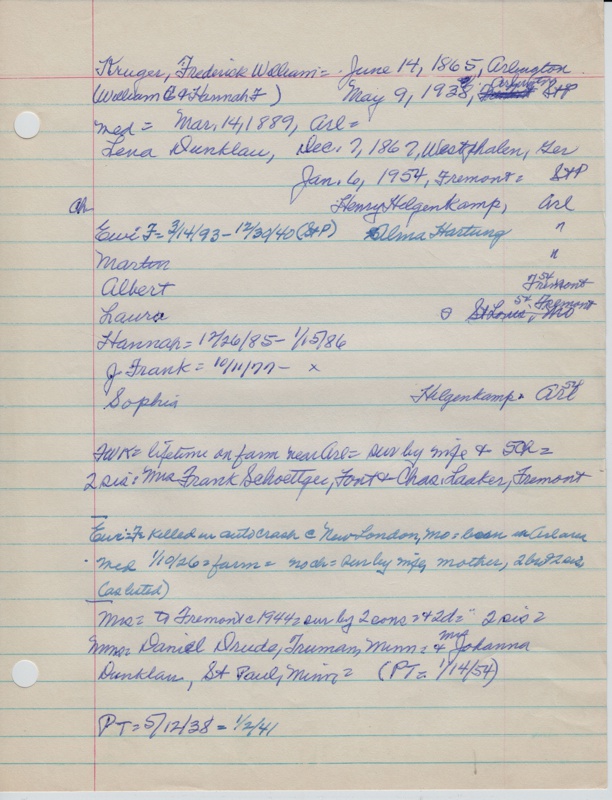 Kruger, Frederick William = June 14, 1865, Arlington
(William C & Hannah F) May 9, 1938, Arlington StP
med = Mar. 14, 1889, Arl =
Lena Dunklau, Dec. 7, 1867, Westfhalen, Ger
Jan. 6, 1954, Fremont = StP
ch Henry Helgenkamp, Arl
Ewi F = 3/14/93 - 12/30/40 (StP) Alma Hartung "
Marton "
Albert 54 Fremont
Laura St Louis, Mo 54 Fremont
Hannah = 12/26/85 - 1/15/86
J. Frank = 10/11/77 - x
Sophia Helgenkamp = Arl 54
FWK = lifetime on farm near Arl = sur by wife & 5ch =
2 sis: Mrs Frank Schoettger, Font & Chas. Laaker, Fremont
Ewi = Fr killed in auto crash c New London, Mo = born in Arl area
med 1/10/26 = farm = no ch = sur by wife, mother, 2 br & 2 sis
(as listed)
Mrs = to Fremont c 1944 = sur by 2 sons = & 2d = 2 sis =
Mmes = Daniel Drude, Truman, Minn = & Mrs Johanna
Dunklau, St Paul, Minn = (PT = 1/14/54)
PT = 5/12/38 = 1/2/41